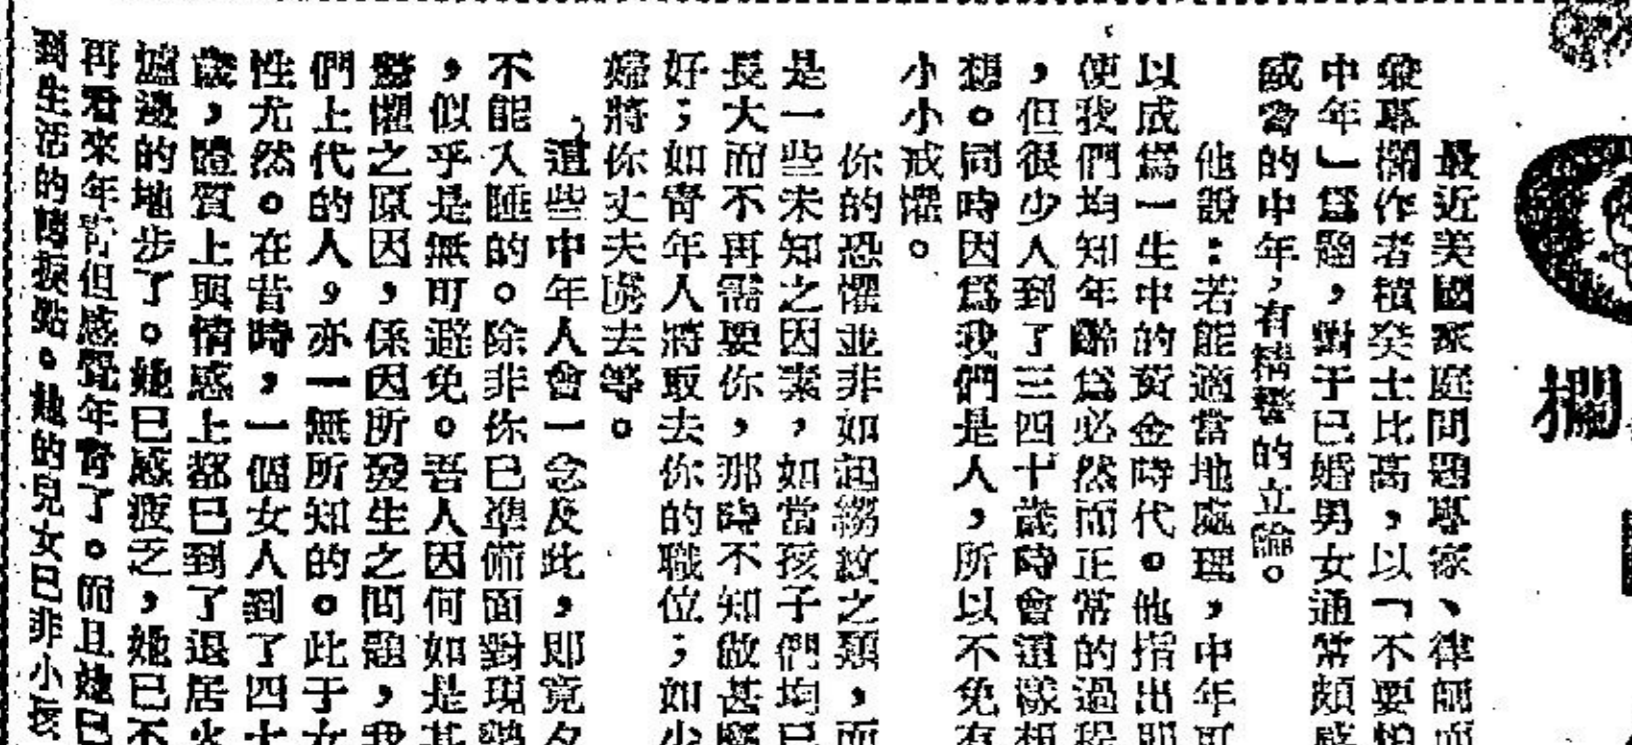 最近美國家庭問題專家、律師而
欄專欄作者積癸士比高，以「不要怕
中年」爲題，對于已婚男女通常頗感
威脅的中年，有精警的立論。
他說：若能適當地處理，中年可
以成爲一生中的黃金時代。他指出即
使我們均知年齡爲必然而正常的過程
，但很少人到了三四十歲時會這樣想
想。同時因爲我們是人，所以不免有
小小戒懼。
你的恐懼並非如起縐紋之類，而
是一些未知之因素，如當孩子們均已
長大而不再需要你，那時不知做甚麼
好；如青年人將取去你的職位；如少
婦將你丈夫誘去等。
這些中年人會一念及此，即竟夕
不能入睡的。除非你已準備面對現
，似乎是無可避免。吾人因何如是其
驚懼之原因，係因所發生之問題，我
們上代的人，亦一無所知的。此于女
性尤然。在昔時，一個女人到了四十
歲，體質上與情感上都已到了退居火
爐邊的地步了。她已感疲乏，她已不
再看來年青但感覺年青了。而且她已
到生活的轉捩點。她的兒女已非小孩
欄